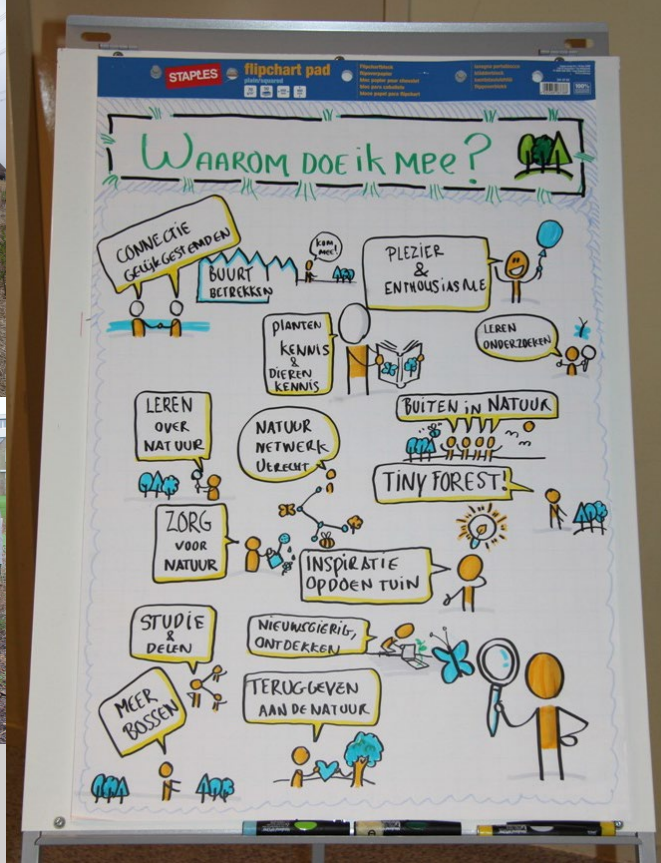 STAPLES
flipchart pad
plain/squared
WAAROM DOE ik MEE?
CONNECTIE
GELIJKGESTEMDEN
BUURT
BETREKKEN
KOM
MEE!
PLEZIER
&
ENTHOUSIASME
PLANTEN
KENNIS
&
DIEREN
KENNIS
LEREN
ONDERZOEKEN
LEREN
OVER
NATUUR
NATUUR
NETWERK
UTRECHT
BUITEN in NATUUR
TINY FOREST!
ZORG
VOOR
NATUUR
INSPIRATIE
OPDOEN TUIN
STUDIE
&
DELEN
NIEUWSGIERIG,
ONTDEKKEN
MEER
BOSSEN
TERUGGEVEN
AAN DE NATUUR